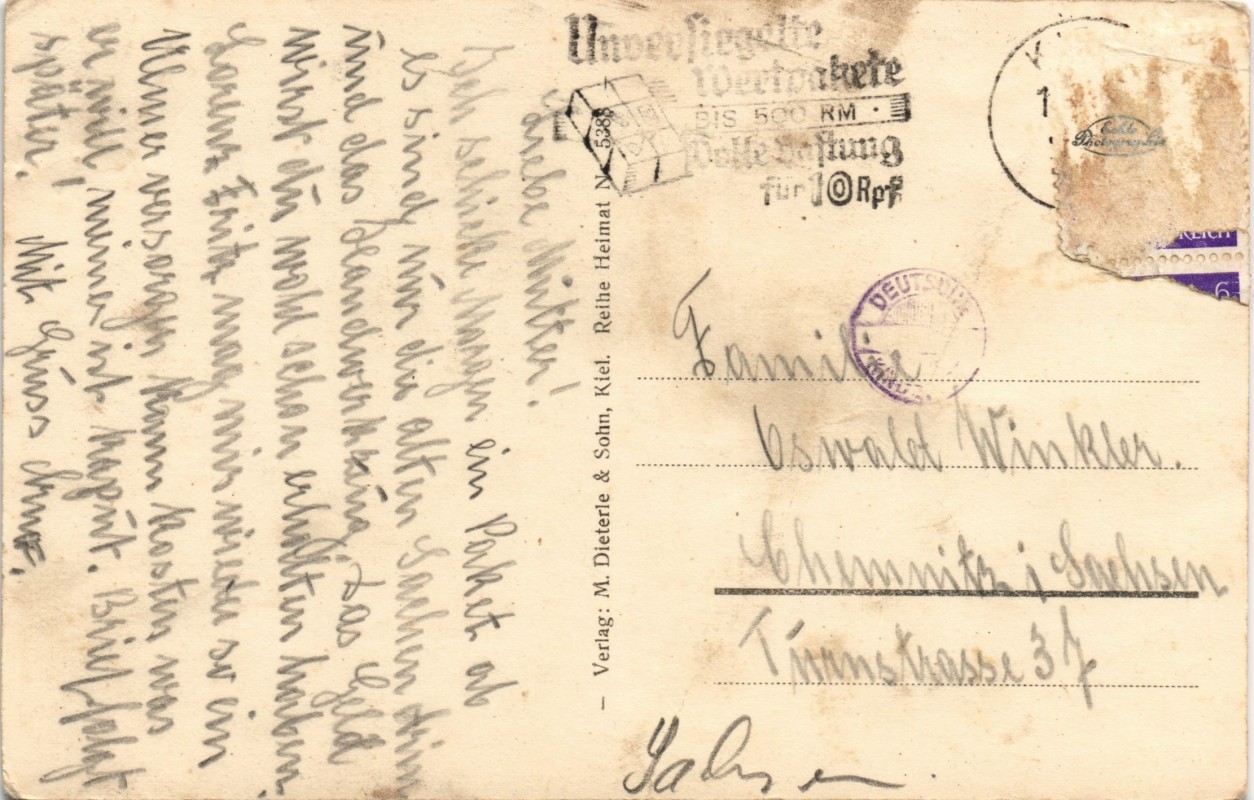 Liebe Mutter!
Ich schicke Morgen ein Paket ab
es sind nur die alten Sachen drin
und das Handwerkzeug, Das Geld
wirst du wohl schon erhalten haben
Fritz mag mir wieder so ein
versorgen kann kosten was
er will meiner ist kaputt. Brief folgt
später! Mit Gruss
Unversiegelte
Wertpakete
BIS 500 RM
Volle Haftung
für 10 Rpf
K
1
echte
Photographie
REICH
6
DEUTSCHE
Familie
Oswald Winkler.
Chemnitz i Sachsen
Turnstrasse 37
Sachsen
– Verlag: M. Dieterle & Sohn, Kiel. Reihe Heimat N 5388